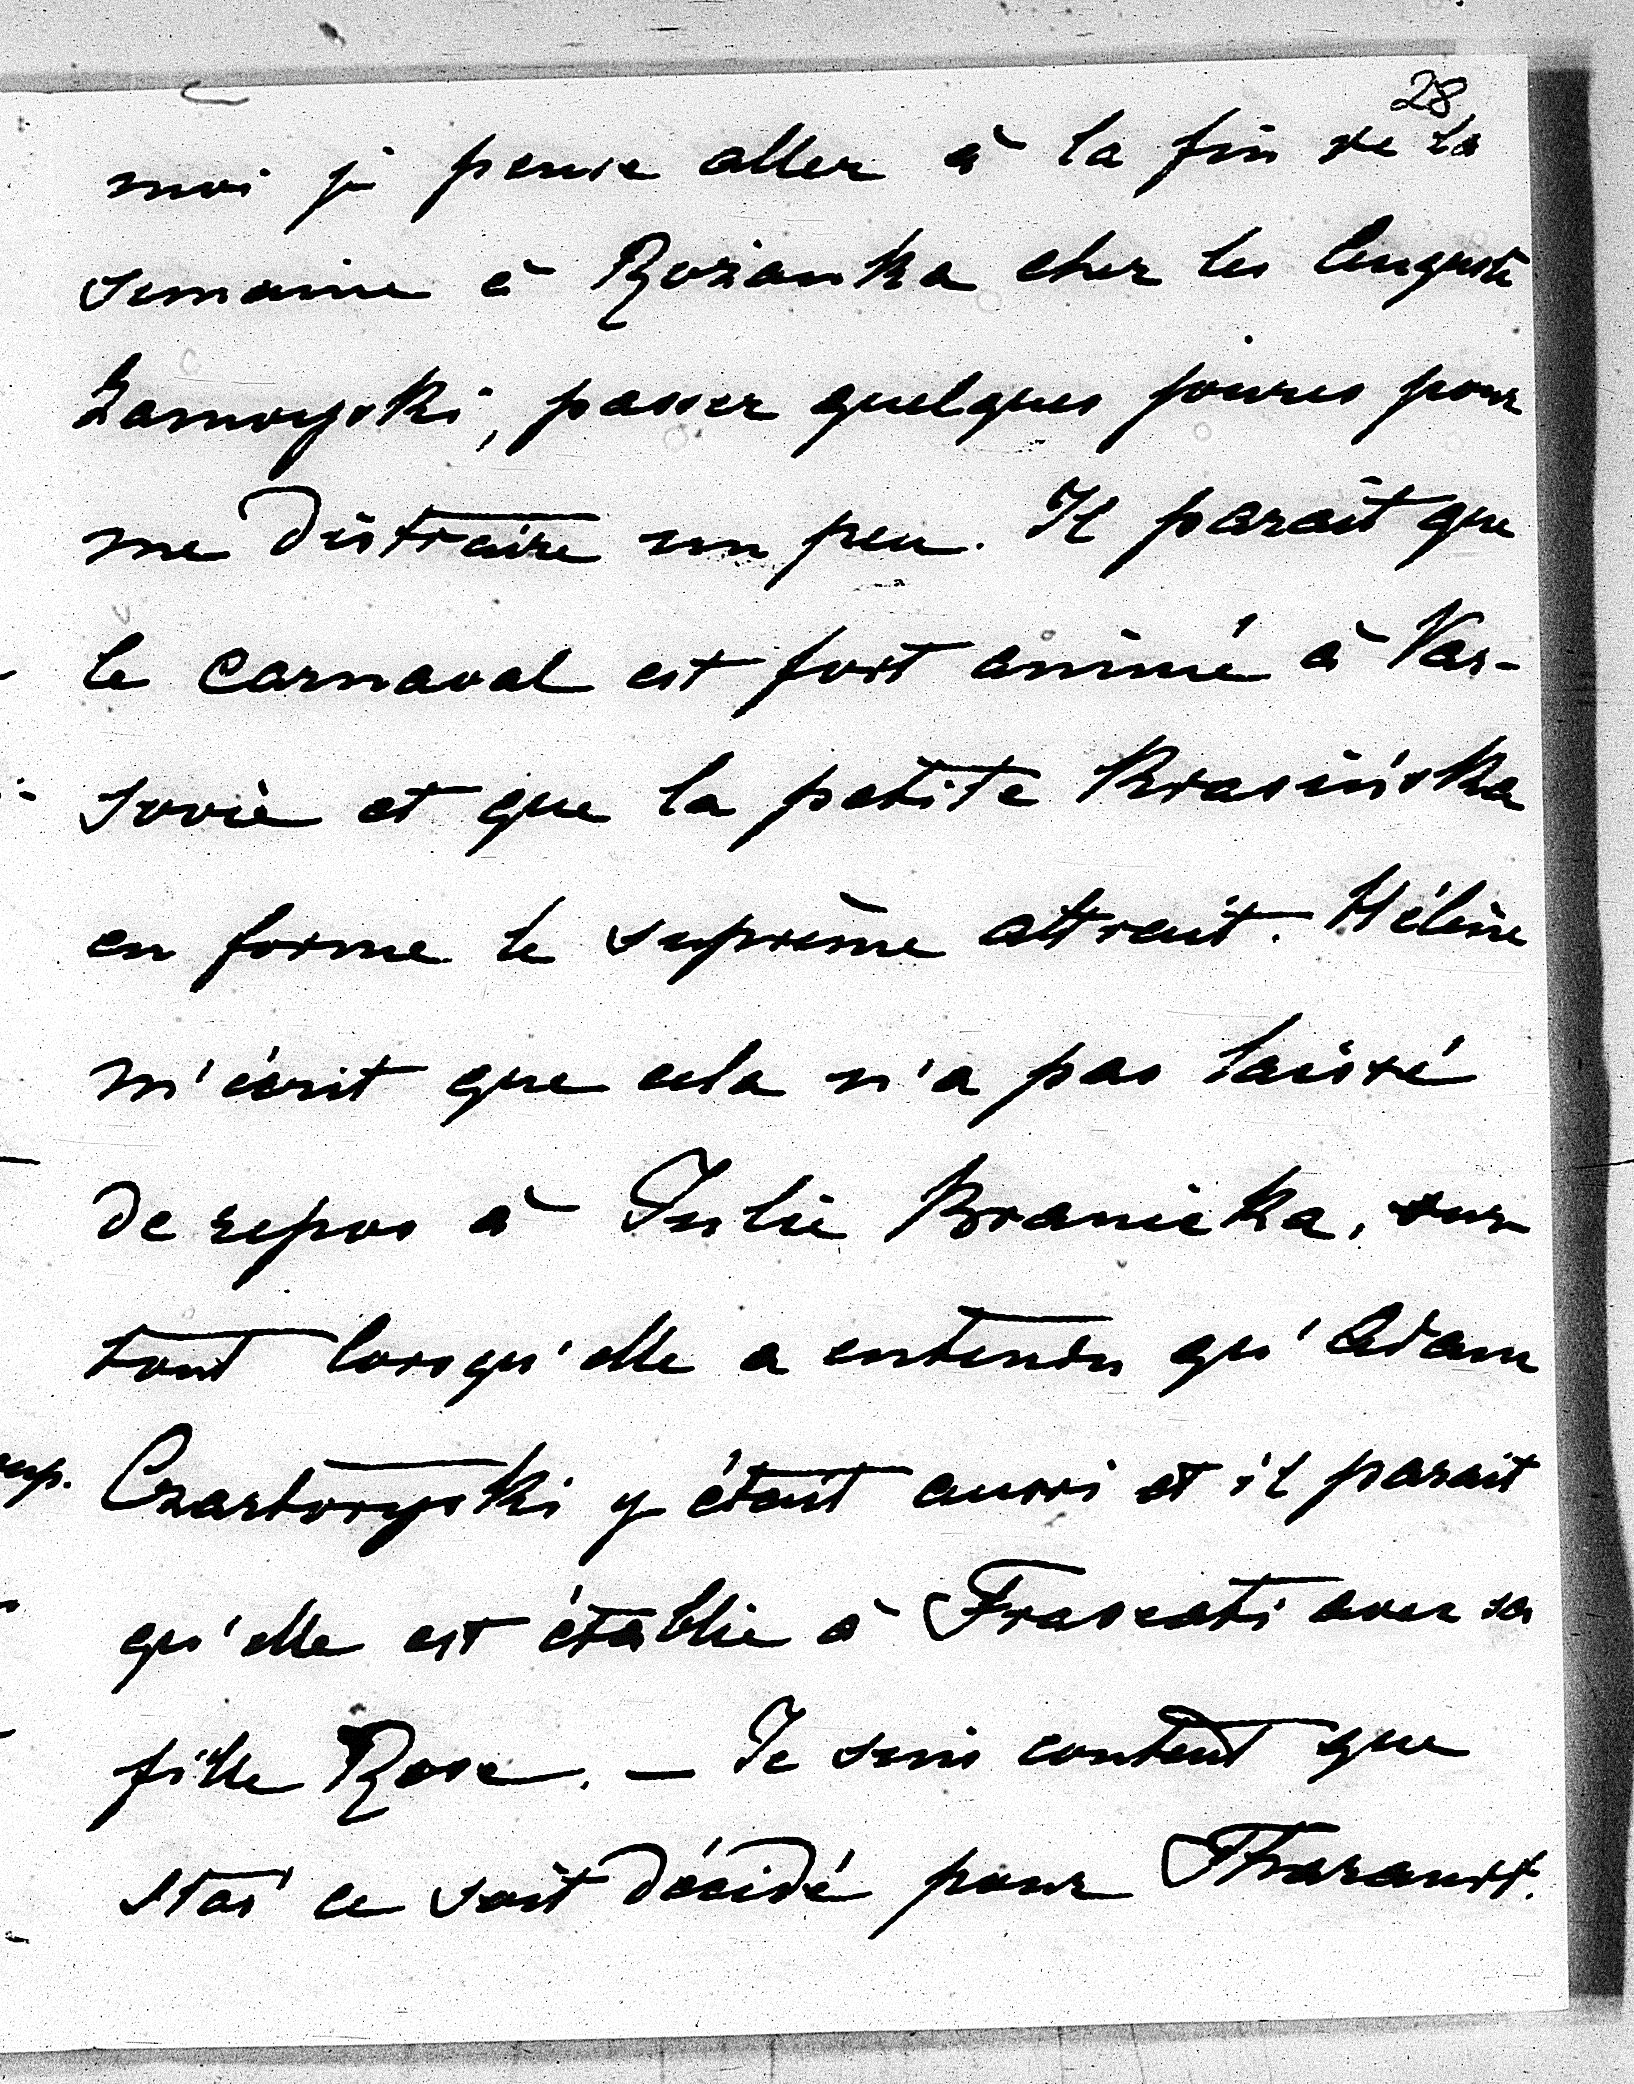 28
moi je pense aller à la fin de la
semaine à Rożanka chez les Auguste
Zamoyski, passer quelques jours pour
me distraire un peu. Il paraît que
le Carnaval est fort animé à Var-
sovie et que la petite Krasińska
en forme le suprême attrait. Hélène
m'écrit que cela n'a pas laissé
de repos à Julie Branicka, sur
tout lorsqu'elle a entendu qu'Adam
Czartoryski y était aussi et il parait
qu'elle est établie à Frascati avec sa
fille Rose. — Je suis content que
Staś ce soit décidé pour Tharandt.